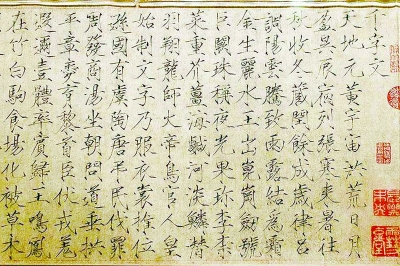 千字文
天地元黃宇宙洪荒日月
盈昃辰宿列張寒來暑往
秋收冬藏閏餘成歲律呂
調陽雲騰致雨露結為霜
金生麗水玉出崑崗劍號
巨闕珠稱夜光果珍李柰
菜重芥薑海鹹河淡鱗潛
羽翔龍師火帝鳥官人皇
始制文字乃服衣裳推位
遜國有虞陶唐弔民伐罪
周發商湯坐朝問道垂拱
平章愛育黎首臣伏戎羌
遐邇壹體率賓歸王鳴鳳
在竹白駒食場化被草木